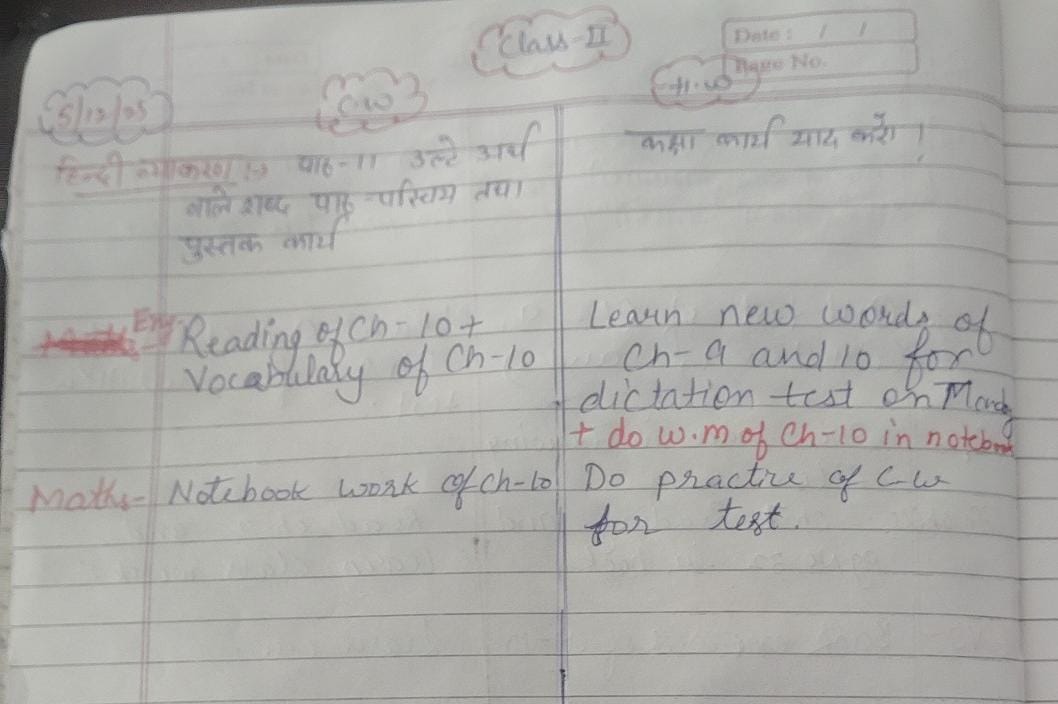 Class-II
Date : / /
Page No.
5/12/25
C.W
H.W
हिन्दी व्याकरण :-> पाठ-11 उल्टे अर्थ
वाले शब्द पाठ-परिचय तथा
पुस्तक कार्य
कक्षा कार्य याद करें।
Eng- Reading of Ch-10 +
Vocabulary of Ch-10
Learn new words of
Ch-9 and 10 for
dictation test on Monday
+ do w.m of Ch-10 in notebook
Maths- Notebook work of Ch-10
Do practice of C-W
for test.